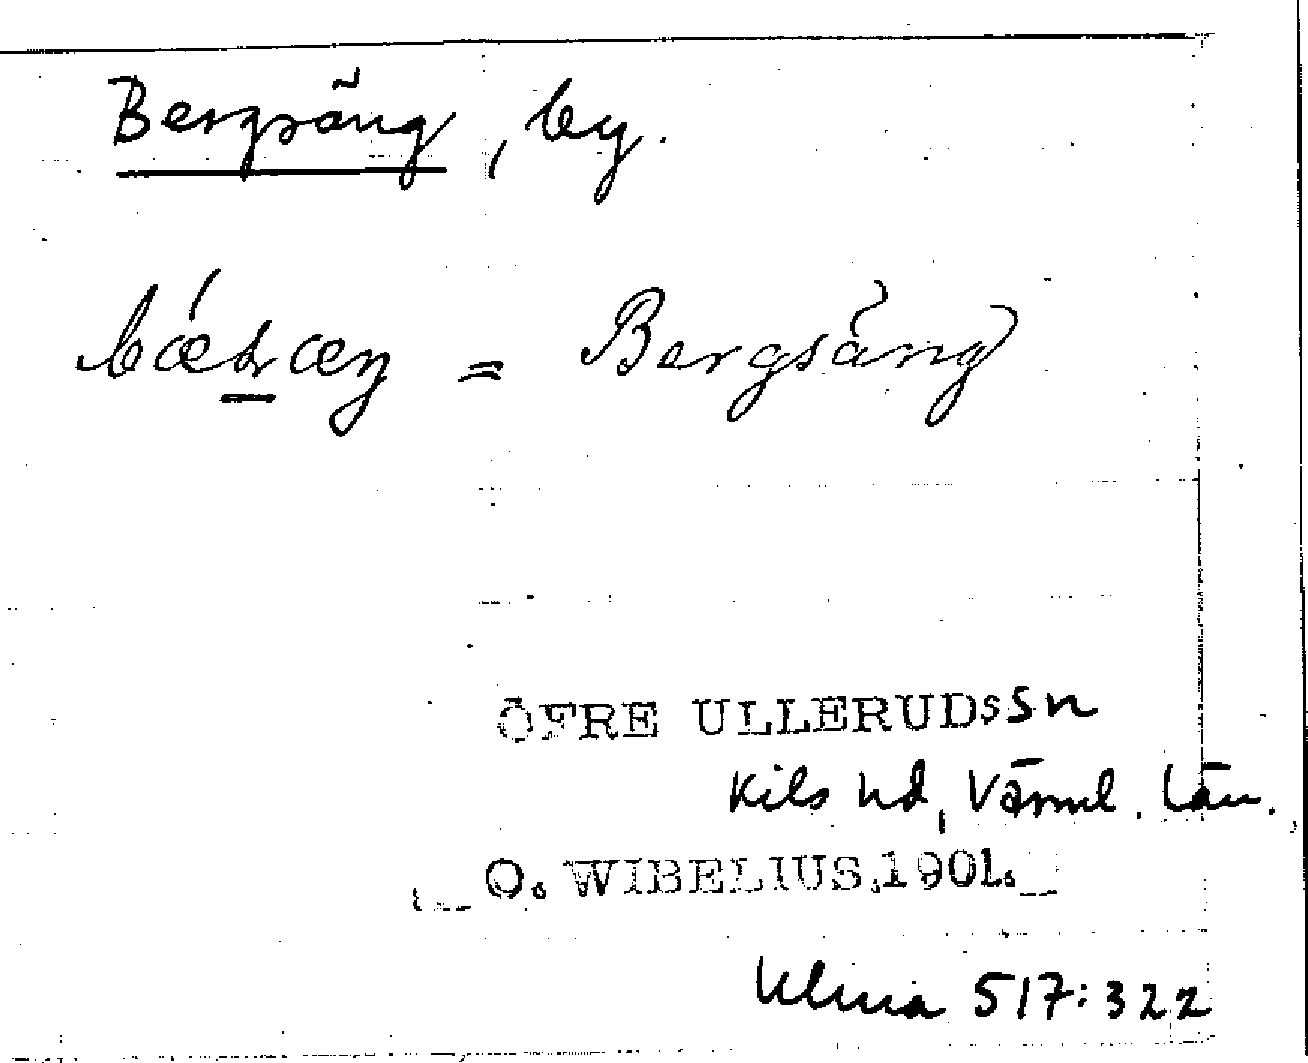 Bergsäng, by.
= Bergsäng
ÖFRE ULLERUDS sn
Kils hd, Värml. län.
O. WIBELIUS.1901.
Ulma 517:322